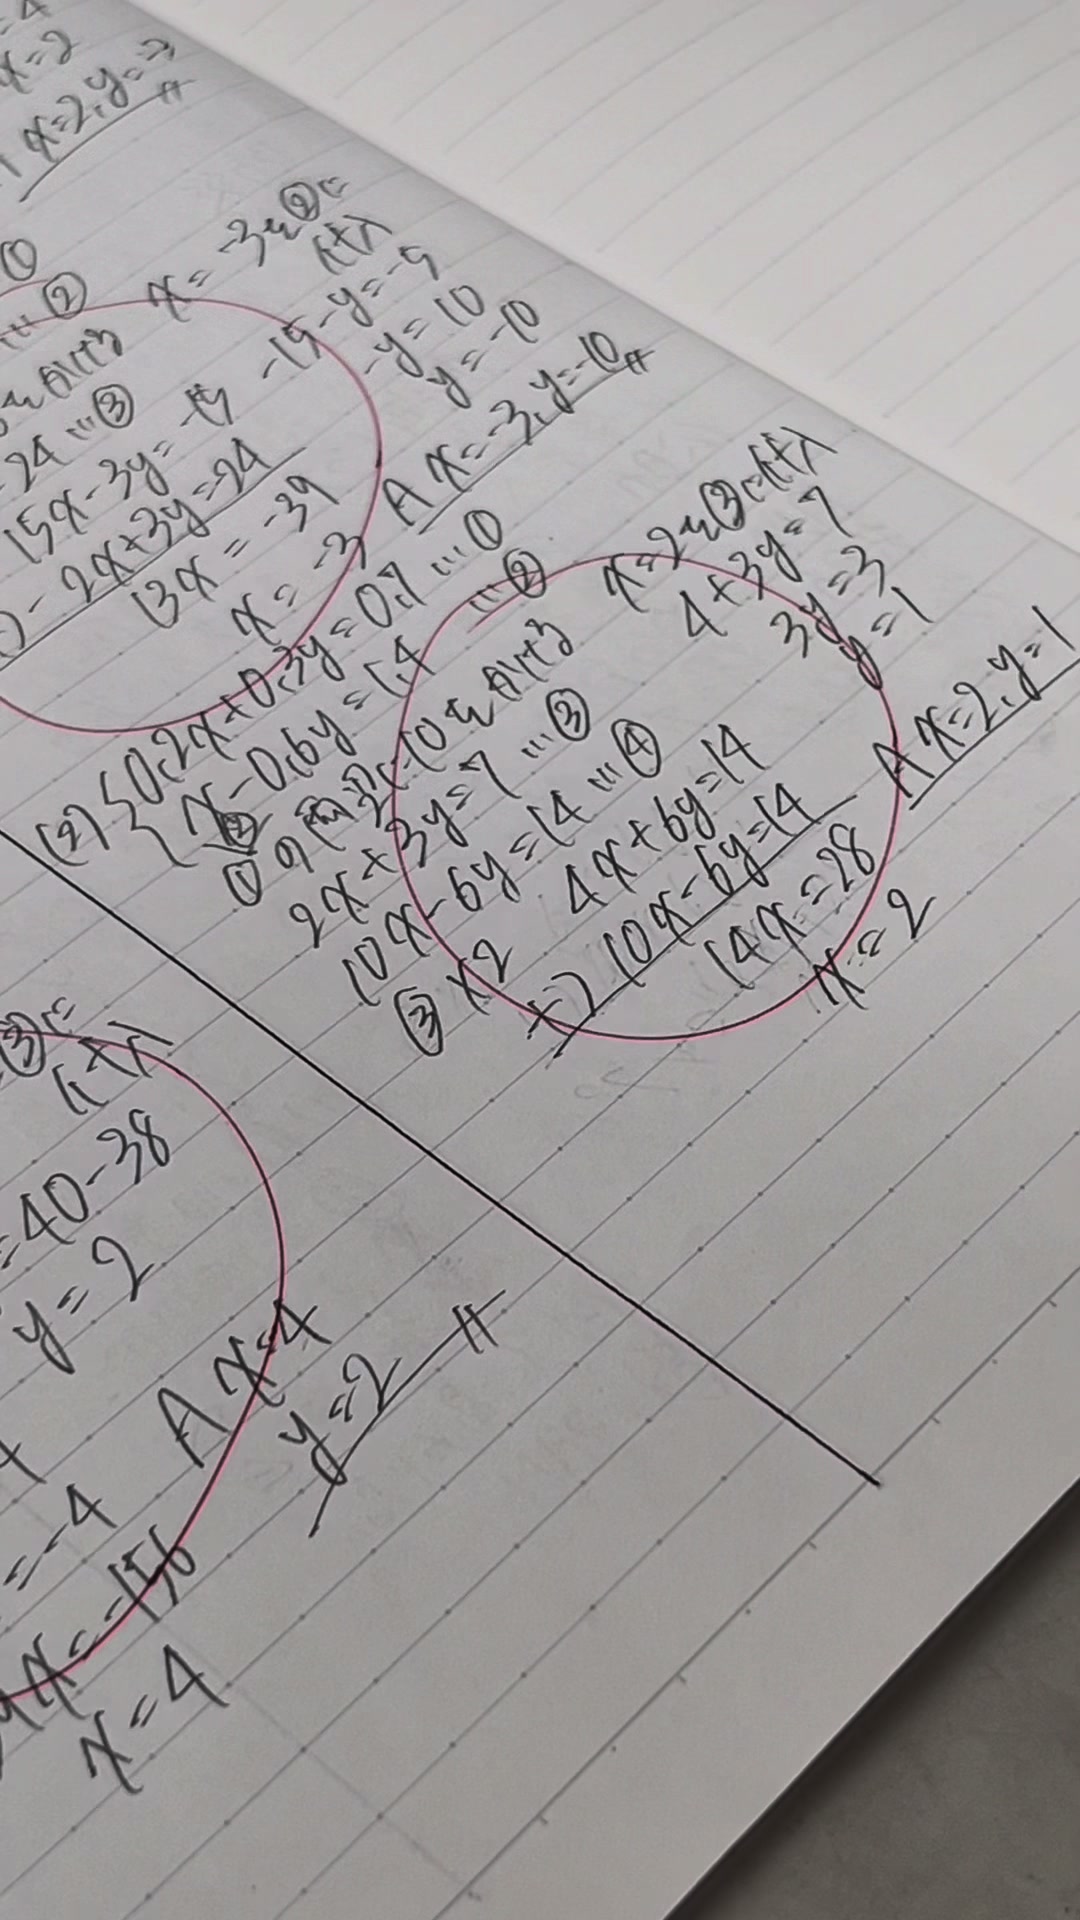 =4
x=2
x=2, y=-7
①
…②
24…③
15x-3y=-15
-2x+3y=-24
13x=-39
x=-3
x=-3を②に
代入
-15-y=-5
-y=10
y=-10
A x=-3, y=-10
(2) 0.2x+0.3y=0.7…①
x-0.6y=1.4…②
2x+3y=7…③
10x-6y=14…④
③×2
4x+6y=14
+) 10x-6y=14
14x=28
x=2
x=2を③に代入
4+3y=7
3y=3
y=1
A x=2, y=1
③に
代入
=40-38
y=2
A x=4
y=2
=-4
x=-156
x=4